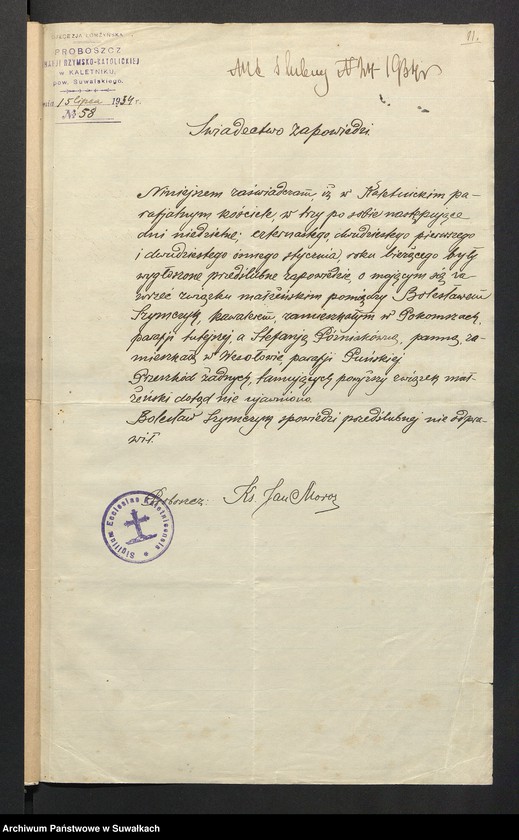 DIECEZJA ŁOMŻYŃSKA
PROBOSZCZ
PARAFJI RZYMSKO-KATOLICKIEJ
w KALETNIKU,
pow. Suwalskiego.
dnia 15 lipca 1934 r.
№ 58
91.
Akt ślubny N 24 1934 r
Świadectwo zapowiedzi.
Niniejszem zaświadczam iż w Kaletnickim pa-
rafjalnym kościele, w trzy po sobie następujące
dni niedzielne: czternastego, dwudziestego pierwszego
i dwudziestego ósmego stycznia, roku bieżącego były
wygłoszone przedślubne zapowiedzie o mającym się za-
wrzeć związku małżeńskim pomiędzy Bolesławem
Szymczyk, kawalerem, zamieszkałym w Pokomszach,
parafji tutejszej, a Stefanją Późniakówną, panną, za-
mieszkałą w Wesołowie parafji Puńskiej.
Przeszkód żadnych, tamujących powyższy związek mał-
żeński dotąd nie ujawniono.
Bolesław Szymczyk spowiedzi przedślubnej nie odpra-
wił.
Proboszcz: Ks. Jan Moroz
Sigillum Ecclesiae Kaletnicensis
Archiwum Państwowe w Suwałkach